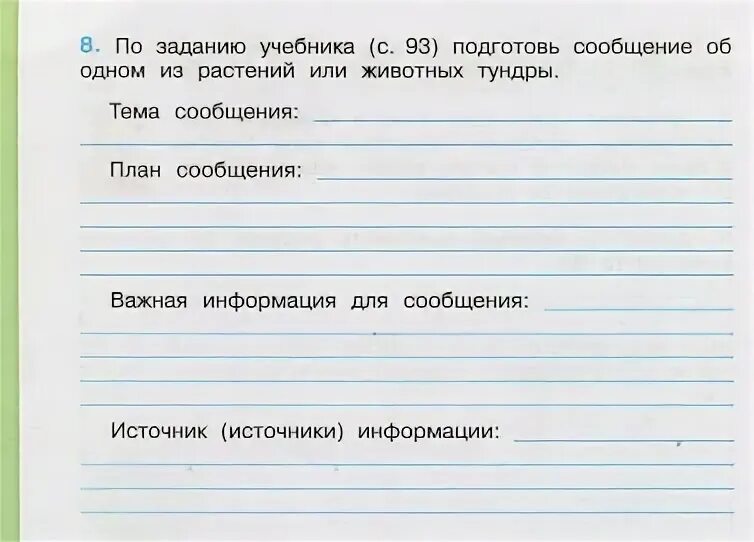 8. По заданию учебника (с. 93) подготовь сообщение об
одном из растений или животных тундры.
Тема сообщения:
План сообщения:
Важная информация для сообщения:
Источник (источники) информации: